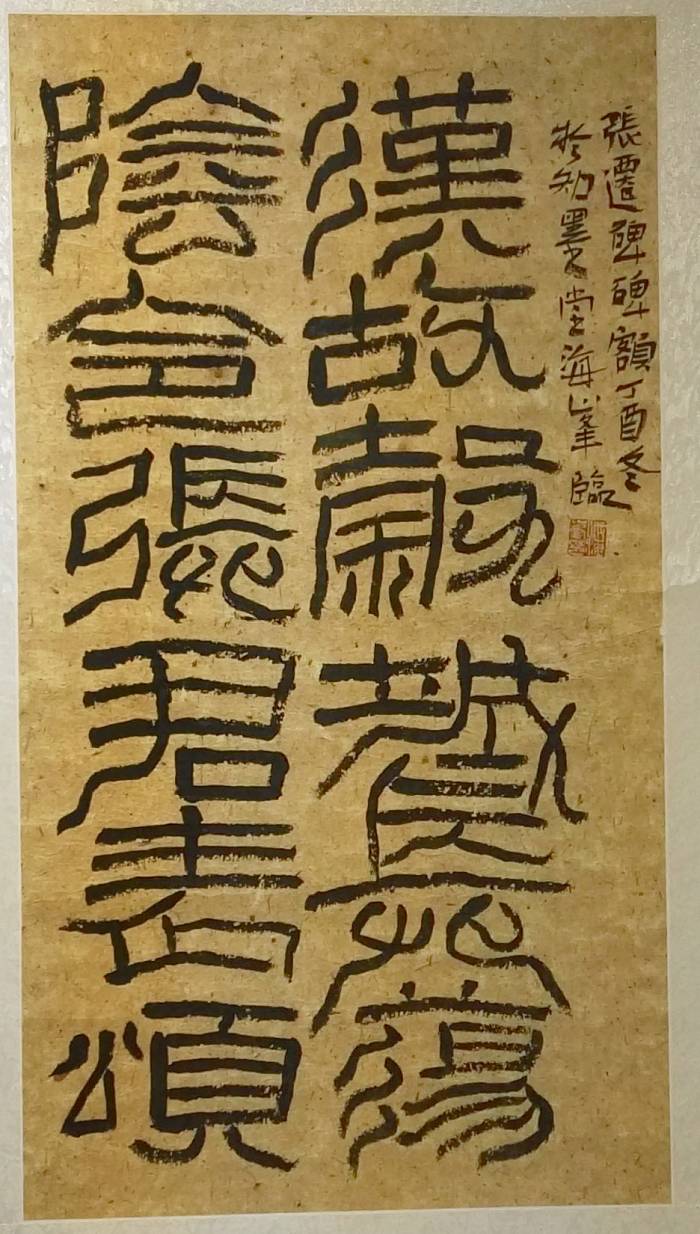 張遷碑碑額丁酉冬
於知墨堂海峰臨
漢故穀城長蕩
陰令張君表頌